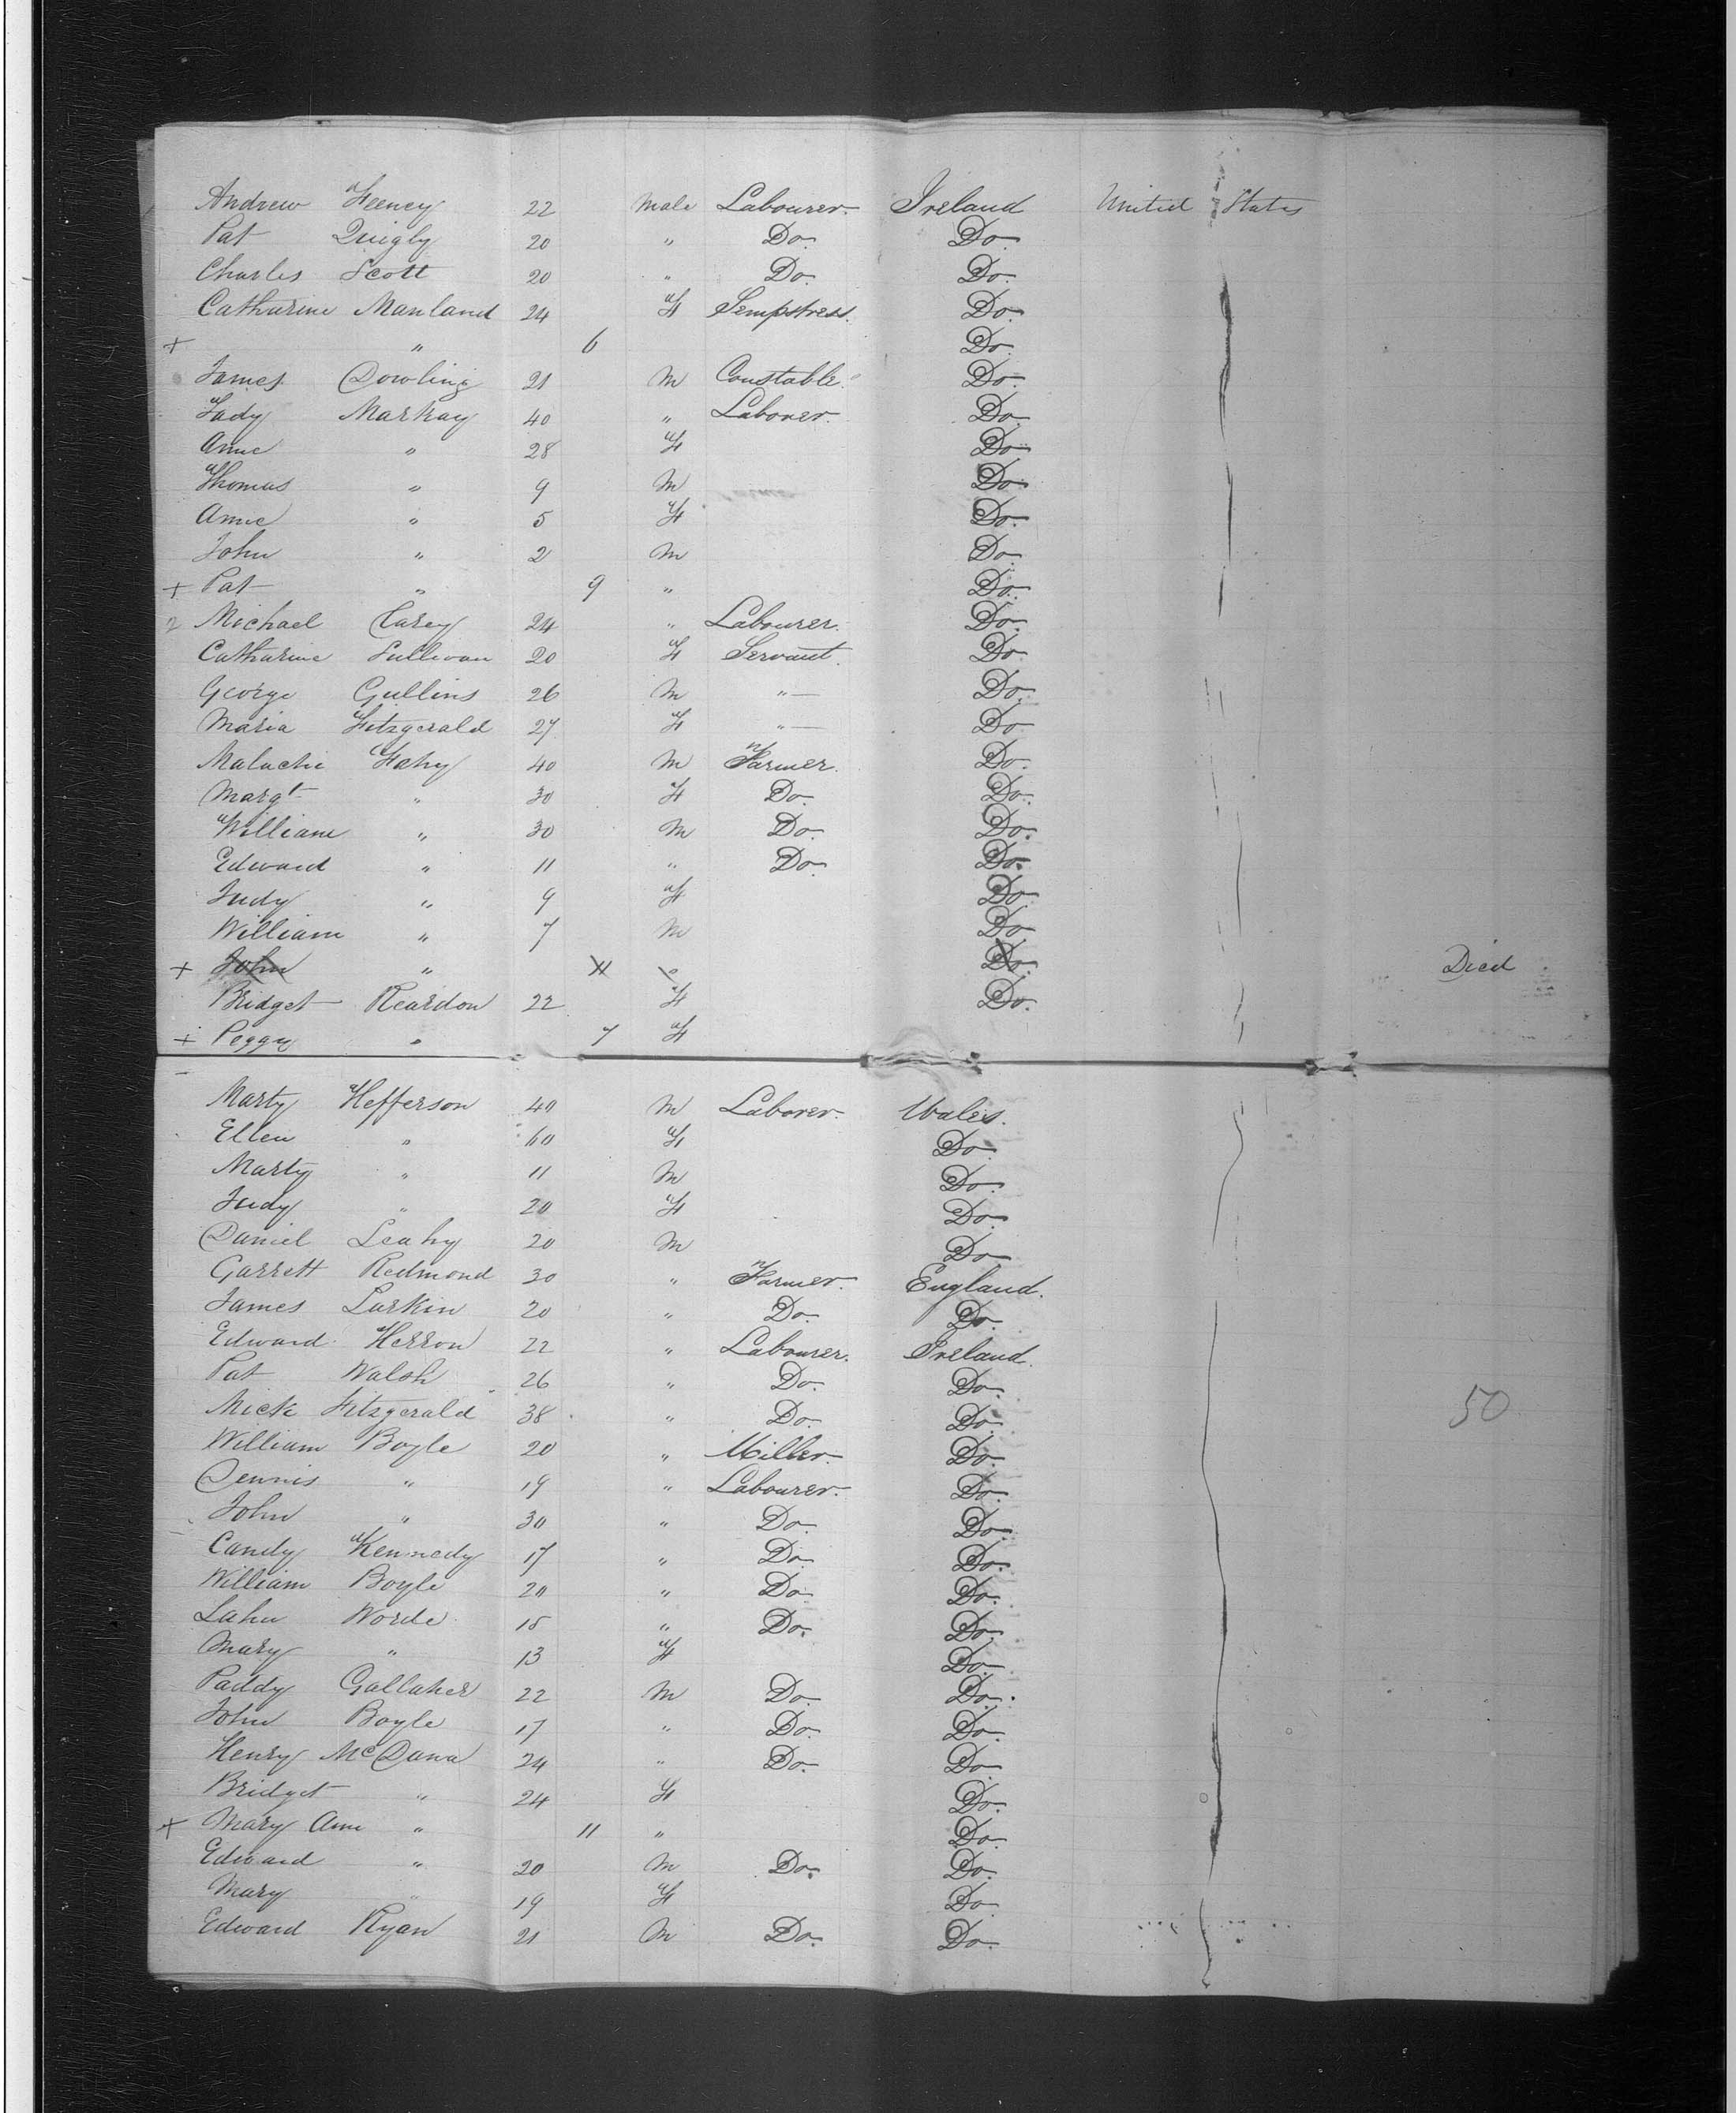 Andrew Feeney 22 Male Labourer. Ireland United States
Pat Quigly 20 " Do. Do.
Charles Scott 20 " Do. Do.
Catharine Manland 24 F Sempstress. Do.
+ " 6 Do.
James Dowling 21 M Constable. Do.
Markay 40 " Laborer. Do.
Anne " 28 F Do.
Thomas " 9 M Do.
Anne " 5 F Do.
John " 2 M Do.
+ Pat " 9 " Do.
2 Michael Carey 24 " Labourer. Do.
Catharine Sullivan 20 F Servant. Do.
George Gullins 26 M " Do.
Maria Fitzgerald 27 F " Do.
Malachi Fahy 40 M Farmer. Do.
Margt " 30 F Do. Do.
William " 30 M Do. Do.
Edward " 11 " Do. Do.
Judy " 9 F Do.
William " 7 M Do.
+ John " " Do. Died
Bridget Reardon 22 F Do.
+ Peggy " 7 F
Marty Hefferson 40 M Laborer. Wales.
Ellen " 60 F Do.
Marty " 11 M Do.
Judy " 20 F Do.
Daniel Leahy 20 M Do.
Garrett Redmond 30 " Farmer. England.
James Larkin 20 " Do. Do.
Edward Herron 22 " Labourer. Ireland.
Pat Walsh 26 " Do. Do.
Mick Fitzgerald 38 " Do. Do. 50
William Boyle 20 " Miller. Do.
Dennis " 19 " Labourer. Do.
John " 30 " Do. Do.
Candy Kennedy 17 " Do. Do.
William Boyle 20 " Do. Do.
Worde 15 " Do. Do.
Mary " 13 F Do.
Paddy Gallaher 22 M Do. Do.
John Boyle 17 " Do. Do.
Henry McDana 24 " Do. Do.
Bridget " 24 F Do.
+ Mary Ann " 11 " Do.
Edward " 20 M Do. Do.
Mary " 19 F Do.
Edward Ryan 21 M Do. Do.